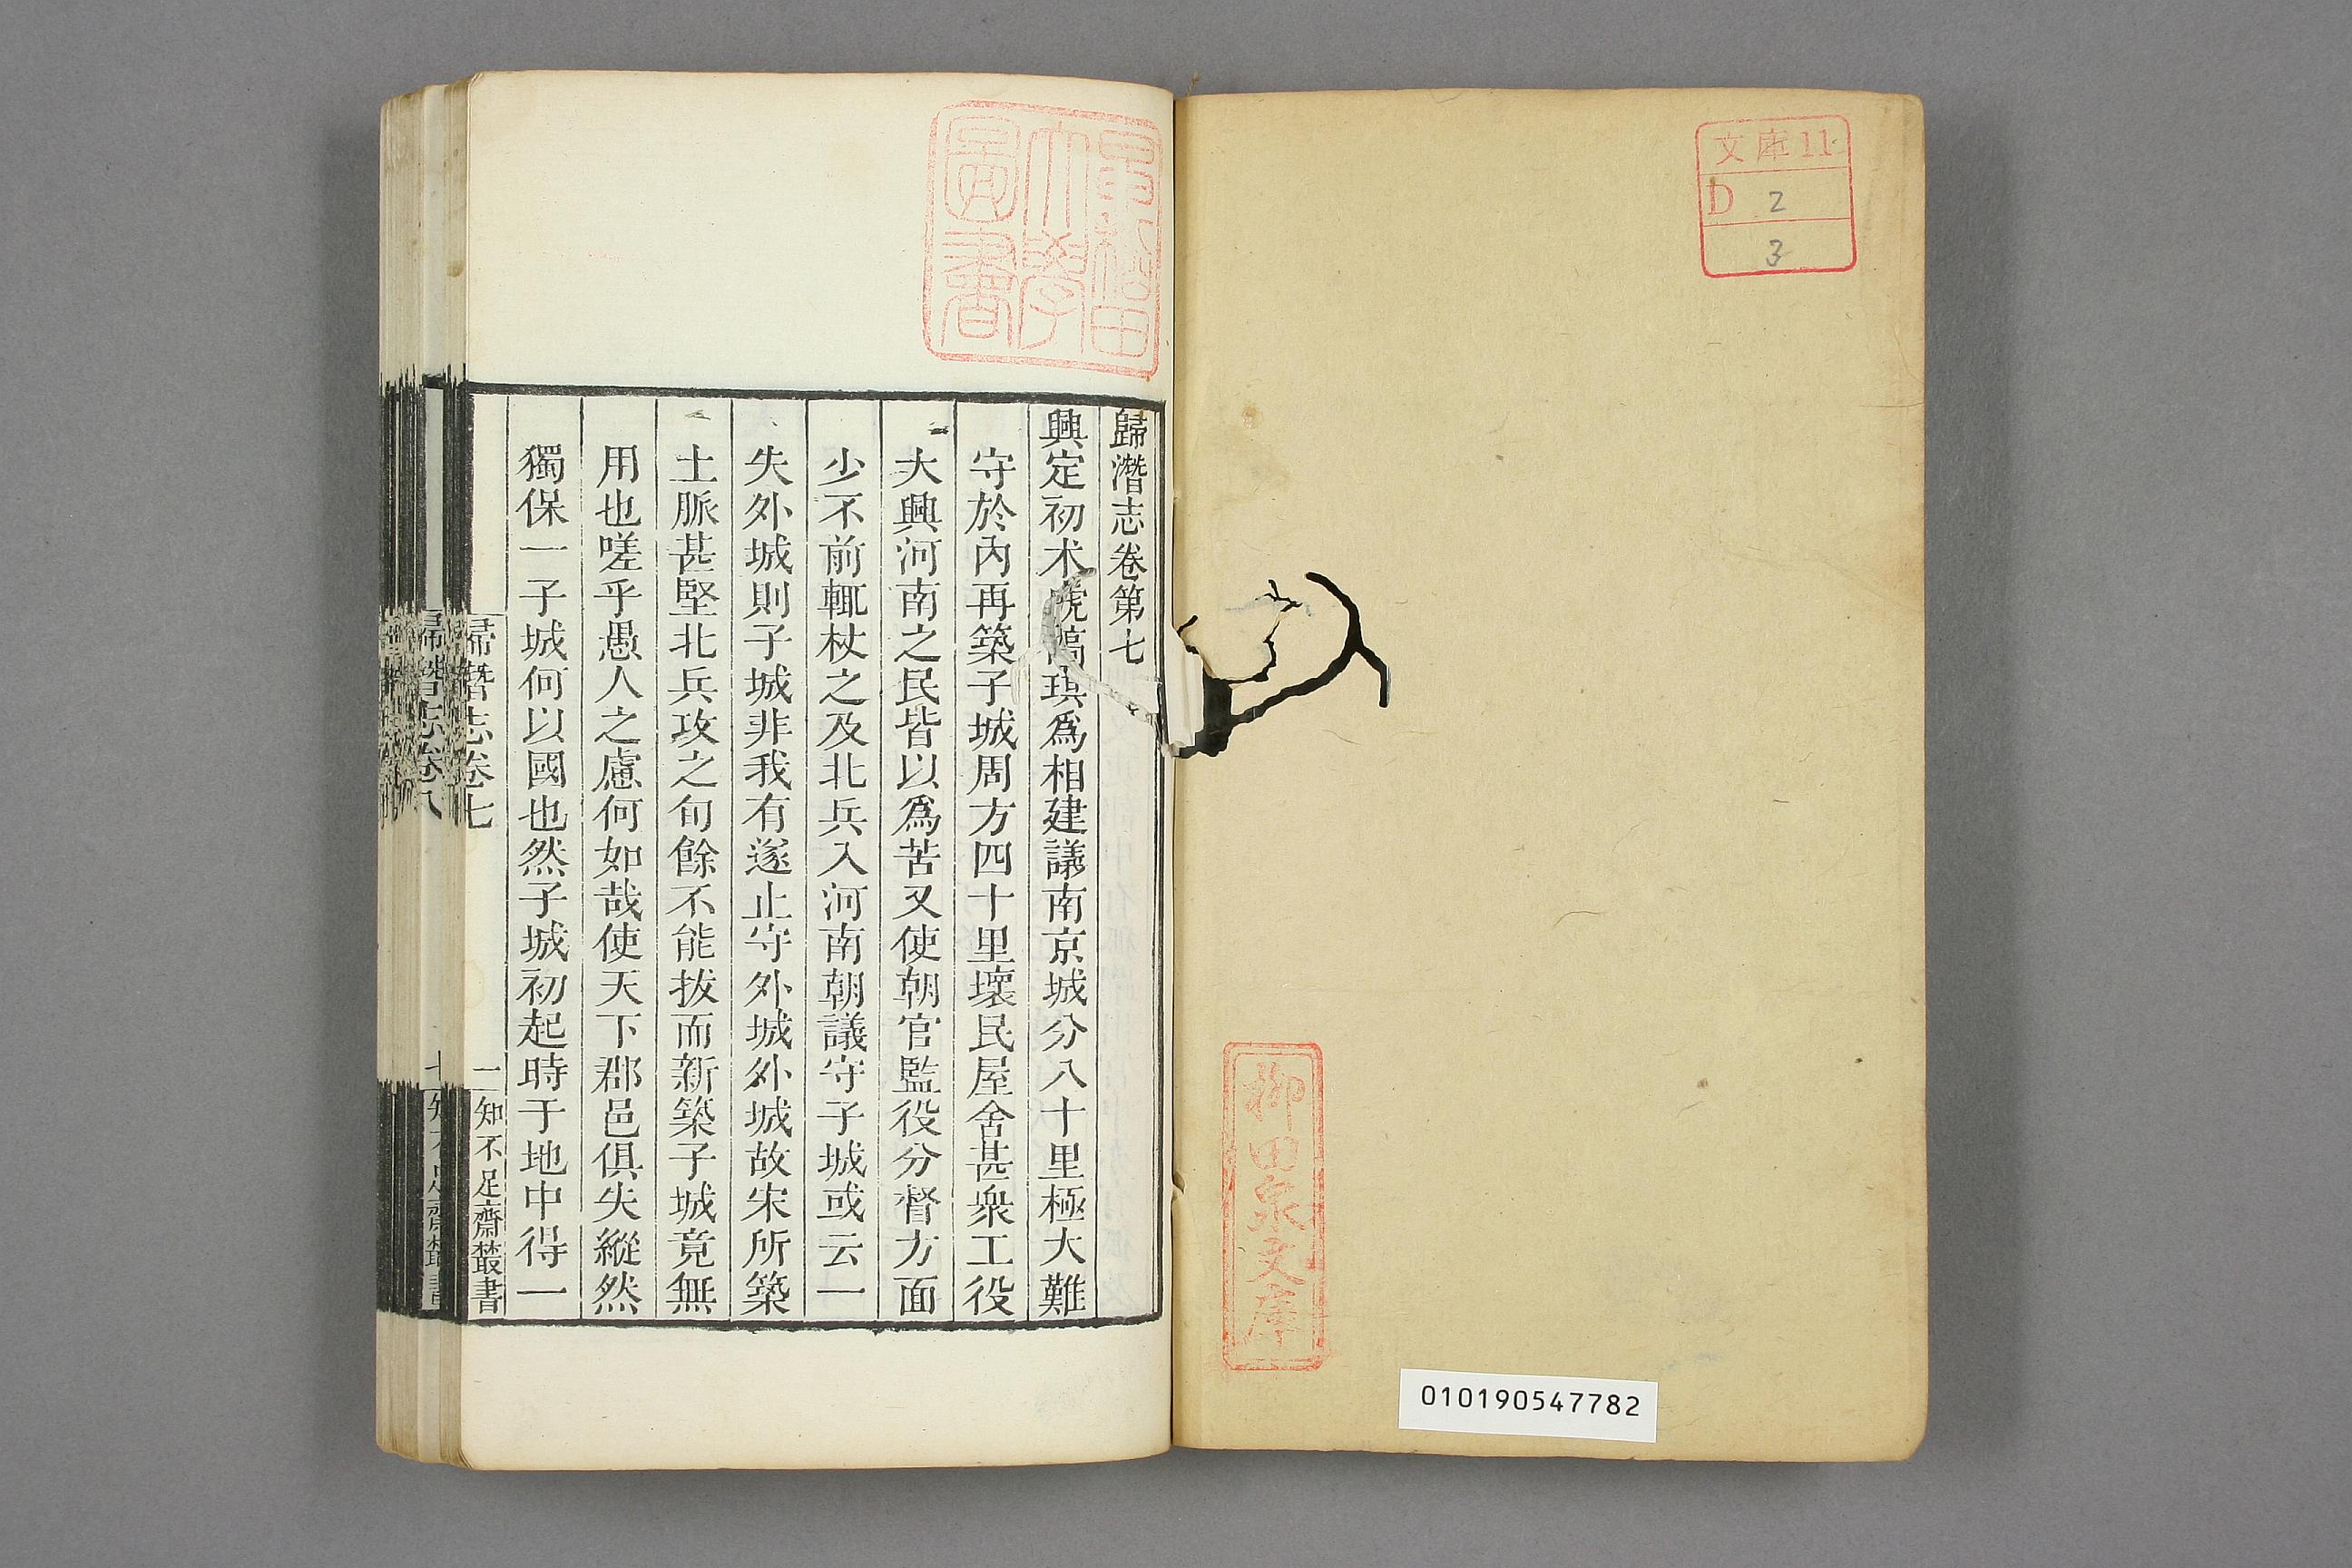 文庫11
D 2
3
柳田泉文庫
010190547782
早稲田
大學
圖書
歸潛志卷第七
興定初术虎高琪爲相建議南京城分八十里極大難
守於內再築子城周方四十里壞民屋舍甚衆工役
大興河南之民皆以爲苦又使朝官監役分督方面
少不前輒杖之及北兵入河南朝議守子城或云一
失外城則子城非我有遂止守外城外城故宋所築
土脈甚堅北兵攻之旬餘不能拔而新築子城竟無
用也嗟乎愚人之慮何如哉使天下郡邑俱失縱然
獨保一子城何以國也然子城初起時于地中得一
歸潛志卷七 一 知不足齋叢書
歸潛志卷八